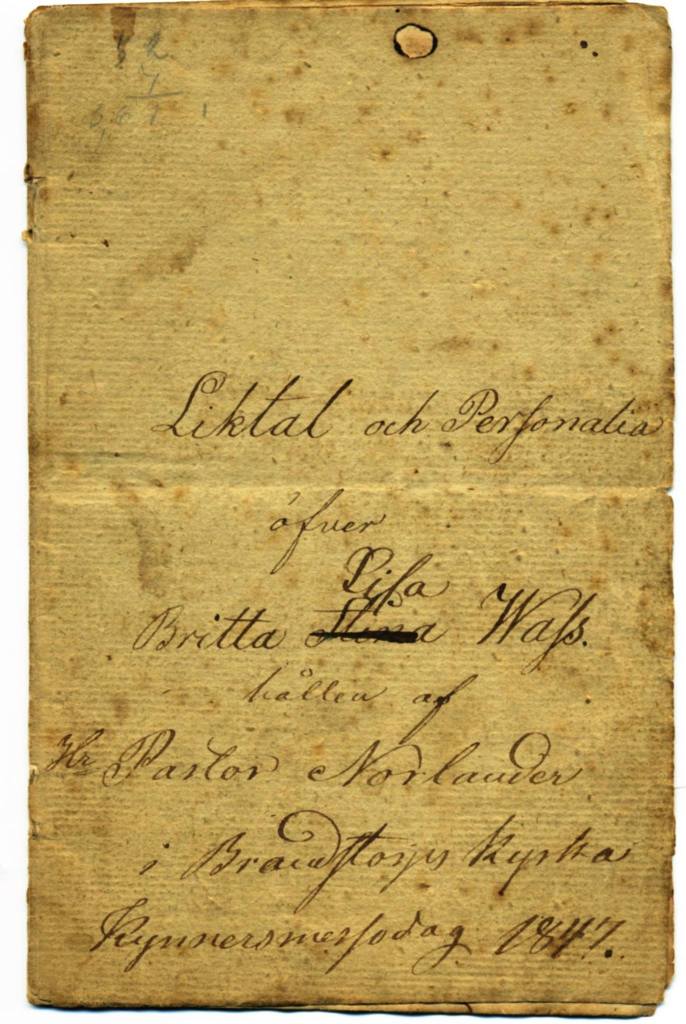 Liktal och Personalia
öfver
Lisa
Britta Stina Wass.
hållen af
Hr Pastor Norlander
i Brandstorps Kyrka
Kynnersmessodag 1847.